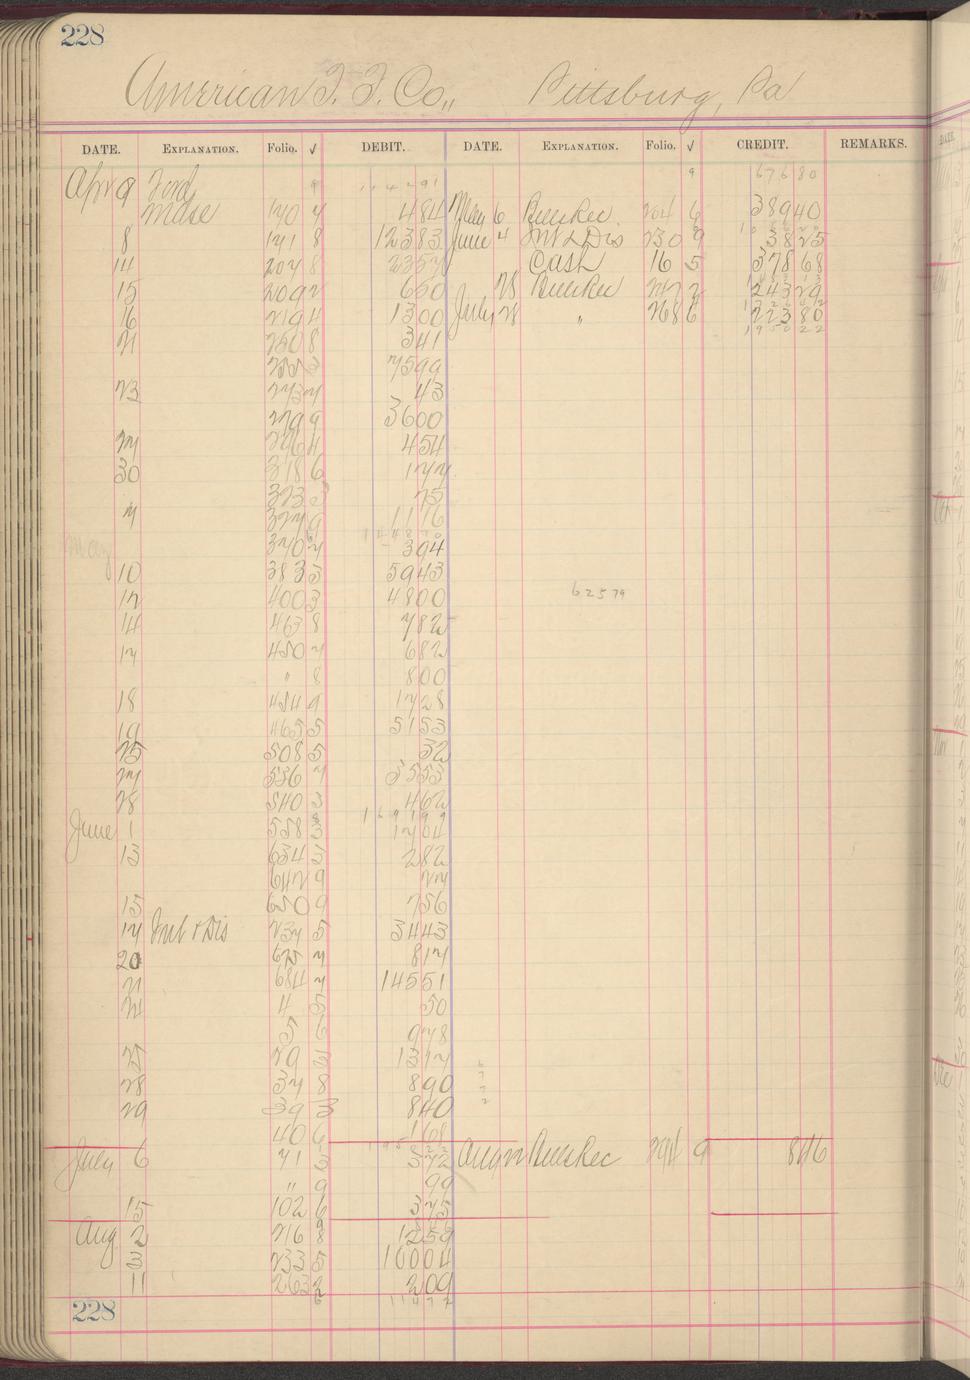 228
American F. F. Co., Pittsburg, Pa
DATE. EXPLANATION. Folio. √ DEBIT. DATE. EXPLANATION. Folio. √ CREDIT. REMARKS.
9 67680
Apr 9 Ford
Mdse 484 May 6 Bills Rec 6 38940
8 8 12383 June 4 Int & Dis 230 9 3825
14 207 8 2357 Cash 16 5 37868
15 209 650 28 Bills Rec 24329
16 219 4 1300 July 28 " 268 6 22380
21 250 8 341 195022
7599
23 43
279 9 3600
27 296 4 454
30 318 6 177
323 75
7 1176
May 370 7 394
10 383 5943
12 400 3 4800 62579
14 463 8 782
17 450 7 682
" 8 800
18 1728
19 465 5 5153
25 508 5 32
27 536 7
28 540 3 462
June 1 558 3 1704
13 634 282
642 9 27
15 650 9 756
17 Int & Dis 237 5 3443
20 675 7 817
21 684 7 14551
24 4 50
5 6 978
25 29 1317
28 37 8 890
29 39 3 840
40 6 168
July 6 71 572 Aug Bills Rec 294 9 846
" 9 99
15 102 6 375
Aug 2 216 8 1259
3 233 5 10004
11 263 2 209
228